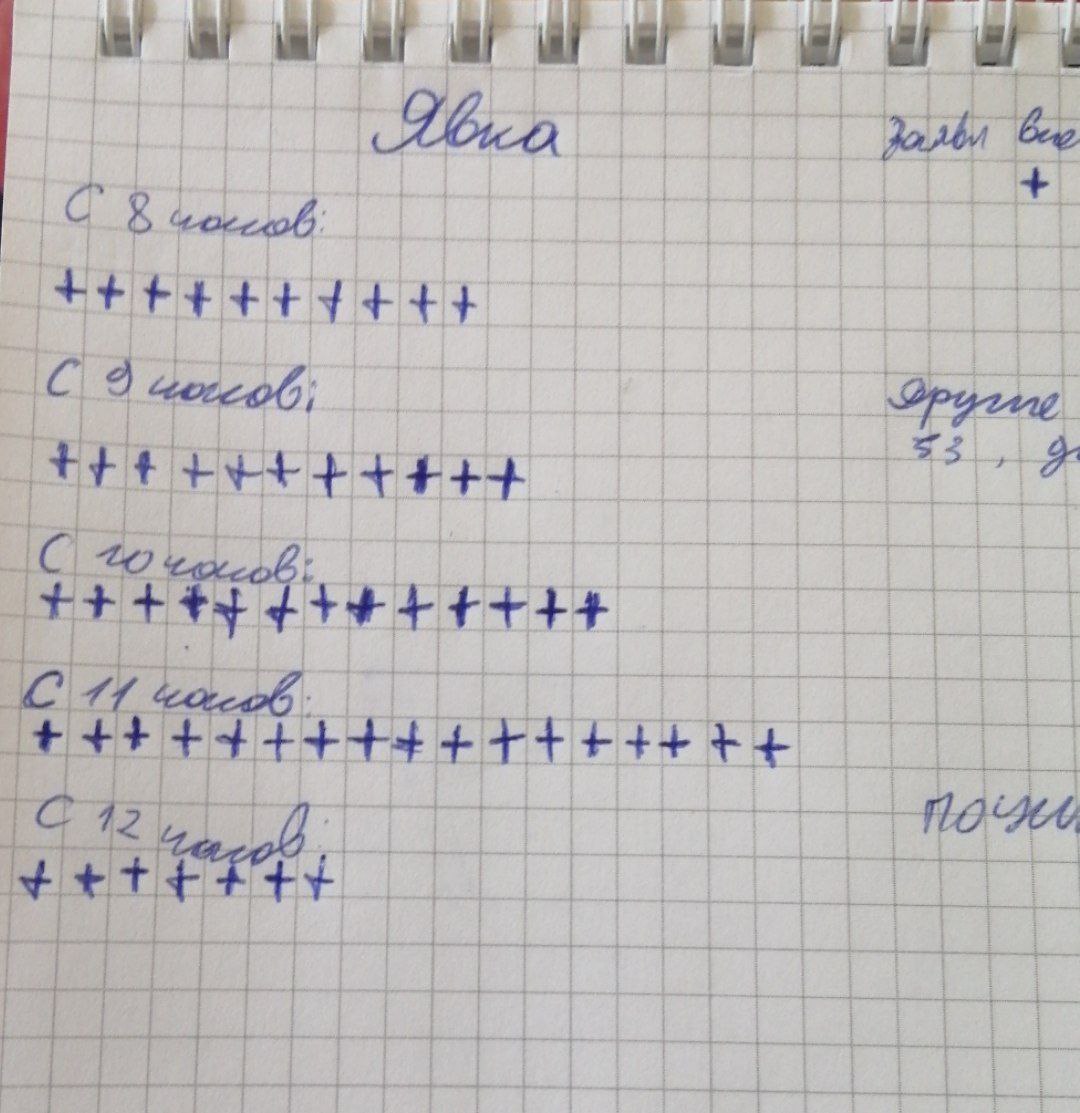 Явка
С 8 часов:
++++++++++
С 9 часов:
+++++++++++
С 10 часов:
+++++++++++++
С 11 часов:
+++++++++++++++++
С 12 часов:
+++++++
заявл
+
Другие
53 ,